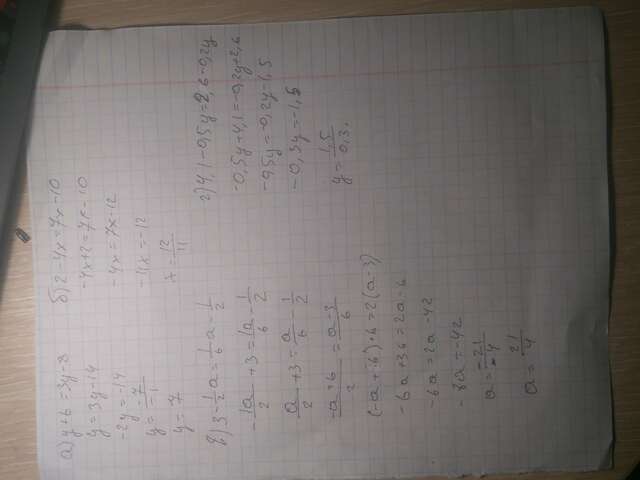 а) y+6=3y-8
y=3y-14
-2y=-14
y=-7/-1
y=7
б) 2-4x=7x-10
-4x+2=7x-10
-4x=7x-12
-11x=-12
x=12/11
в) 3-1/2a=1/6a-1/2
-1a/2+3=1a/6-1/2
a/2+3=a/6-1/2
-a+6/2=a-3/6
(-a+6)·6=2(a-3)
-6a+36=2a-6
-6a=2a-42
-8a=-42
a=-21/-4
a=21/4
г) 4,1-0,5y=2,6-0,2y
-0,5y+4,1=-0,2y+2,6
-0,5y=-0,2y-1,5
-0,3y=-1,5
y=1,5/0,3.